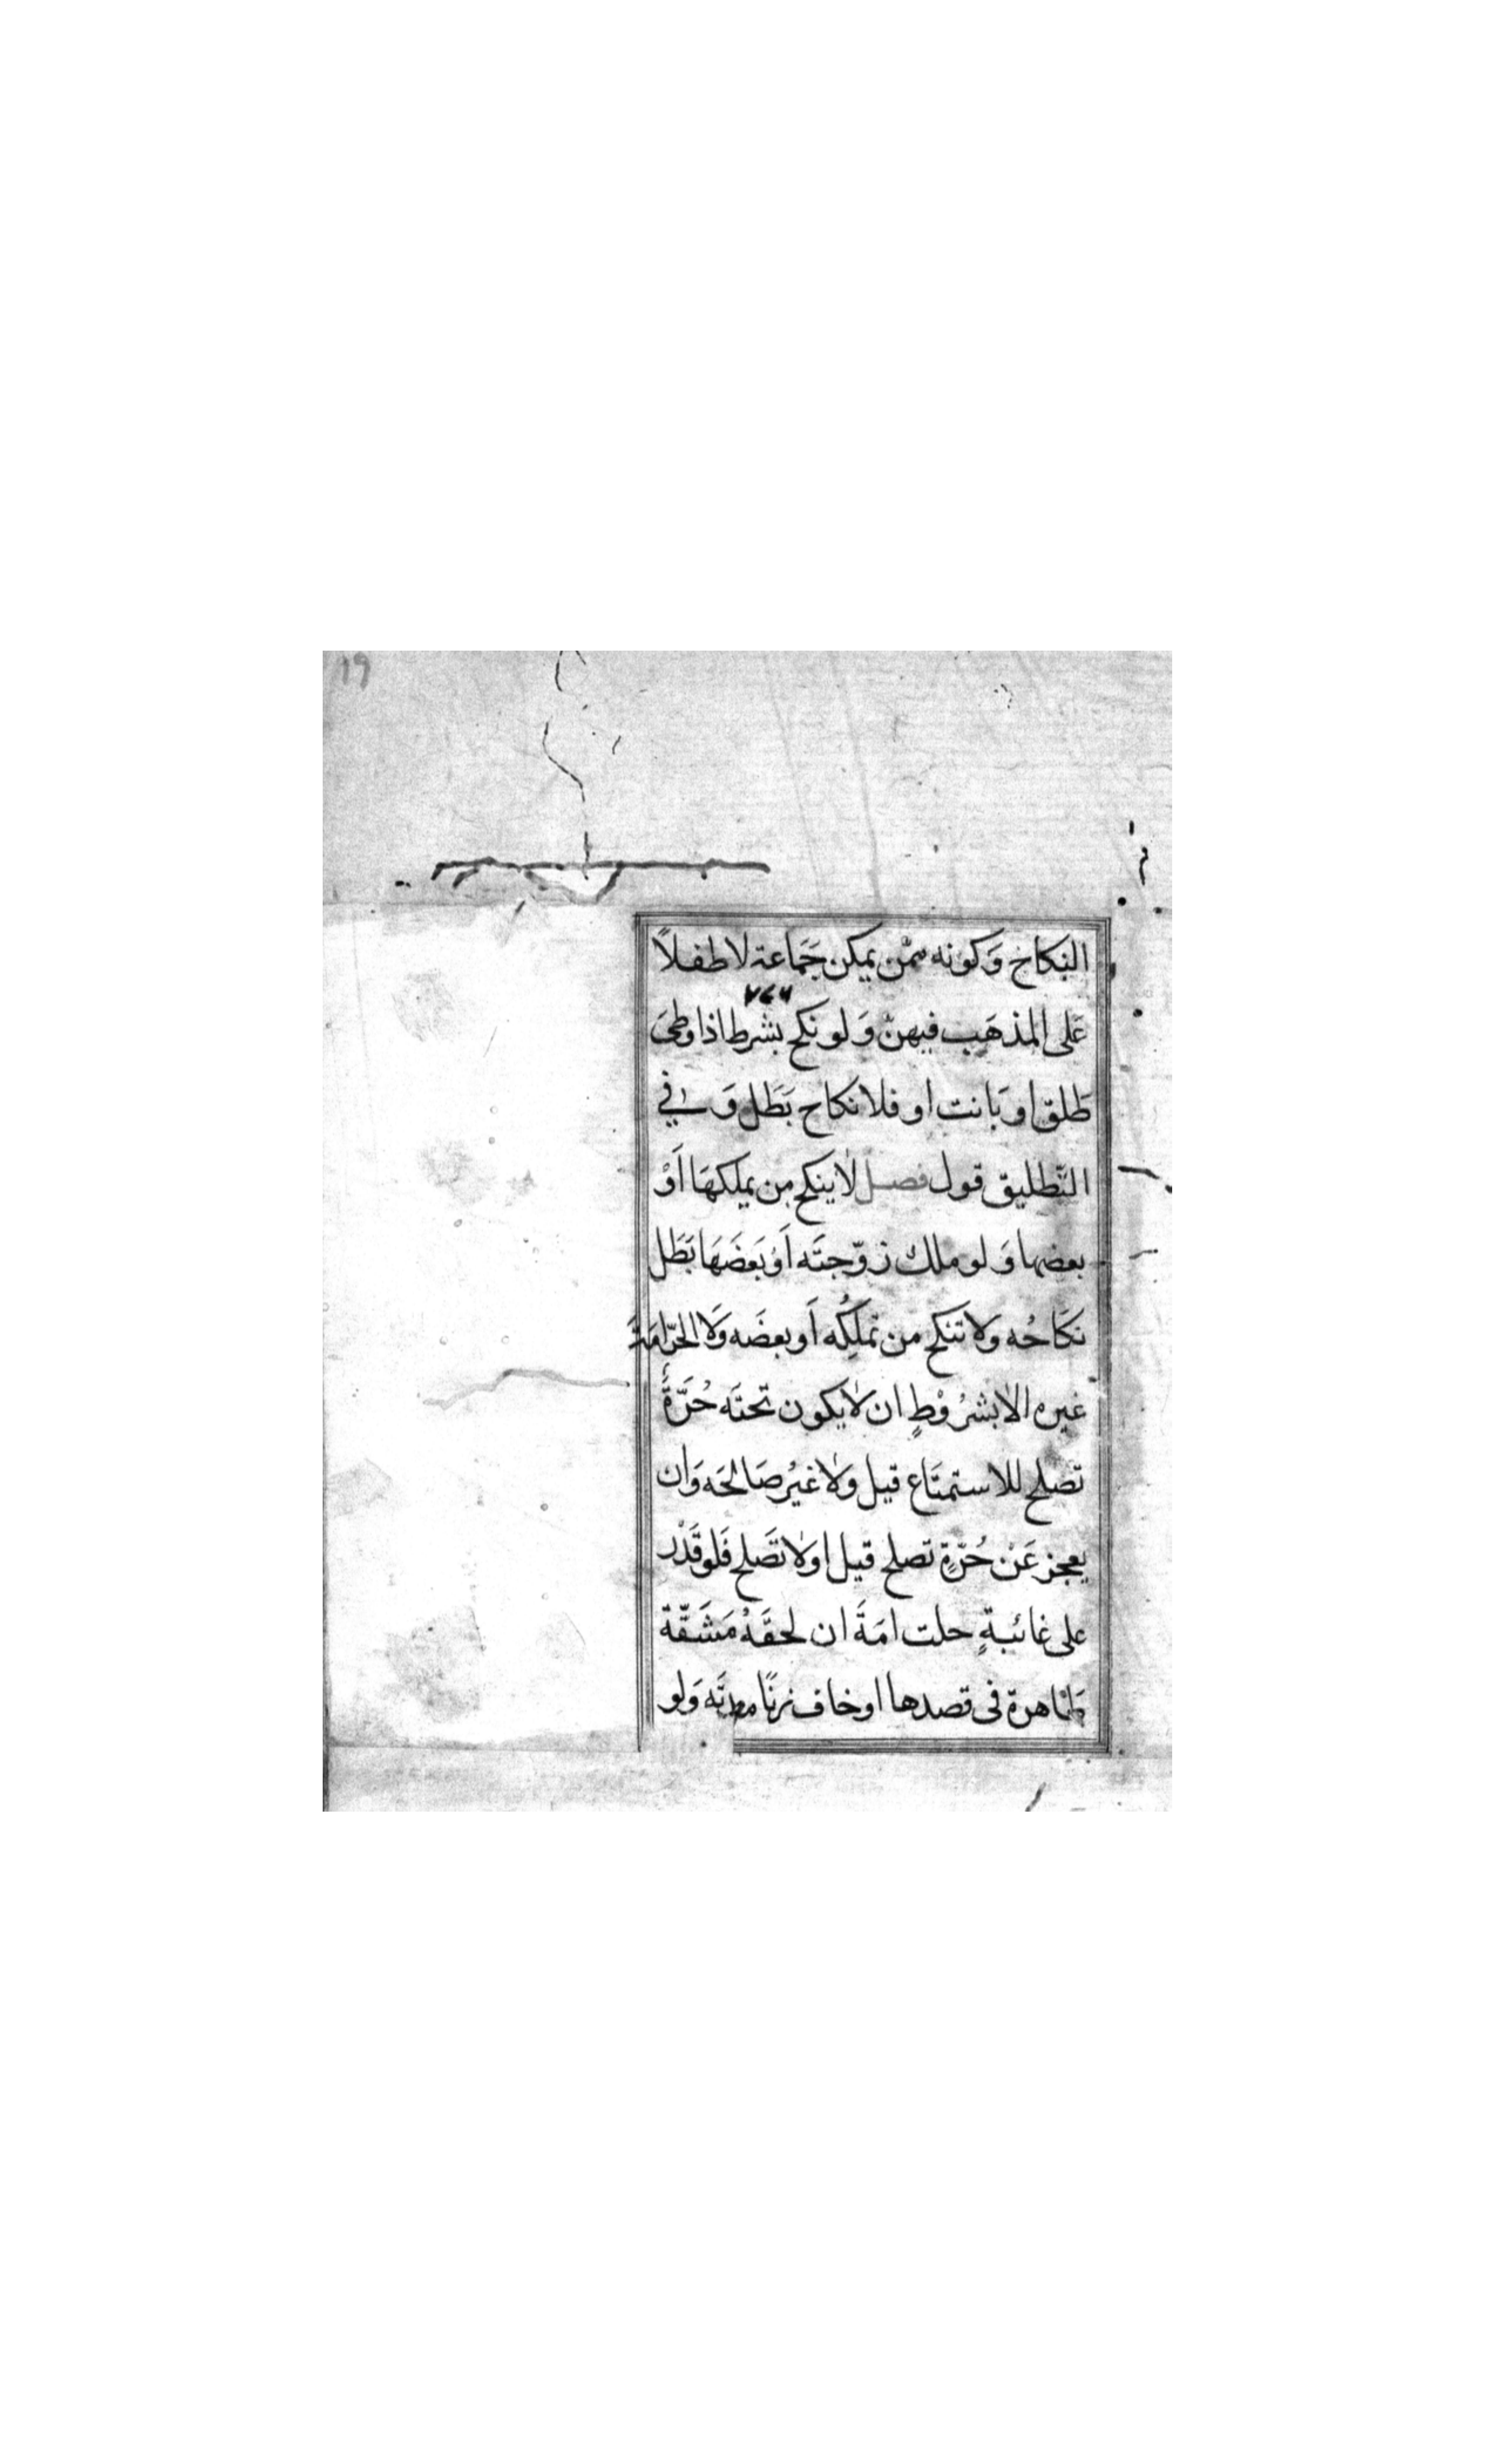 19
النكاح وَكونه ممّن يمكن جَمَاعة لا طفلاً
عَلى المذهَب فيهنّ وَلو نكح بشرط اذا وطئ
طَلق او بَانت او فلا نكاح بَطَل وَفي
التّطليق قول فصل لا ينكح من يملكهَا أَوْ
بعضها وَلو ملك زوّجتَه أَوْ بَعضَهَا بَطَل
نكَاحُه ولا تنكح من تملِكُه أَو بعضَه وَلَا الحرّ امَةَ
غيره الا بشرُوْطٍ ان لا يكون تحتَه حُرَّةٌ
تصلح للاستمتَاع قيل ولا غيْر صَالحَه وَان
يعجز عَنْ حُرّةٍ تصلح قيل اولا تَصلح فَلو قَدْر
على غائبةٍ حلت امَةَ ان لحقَهُ مَشَقّة
ظاهرة فى قصدها او خاف زنًا مدتَه وَلو